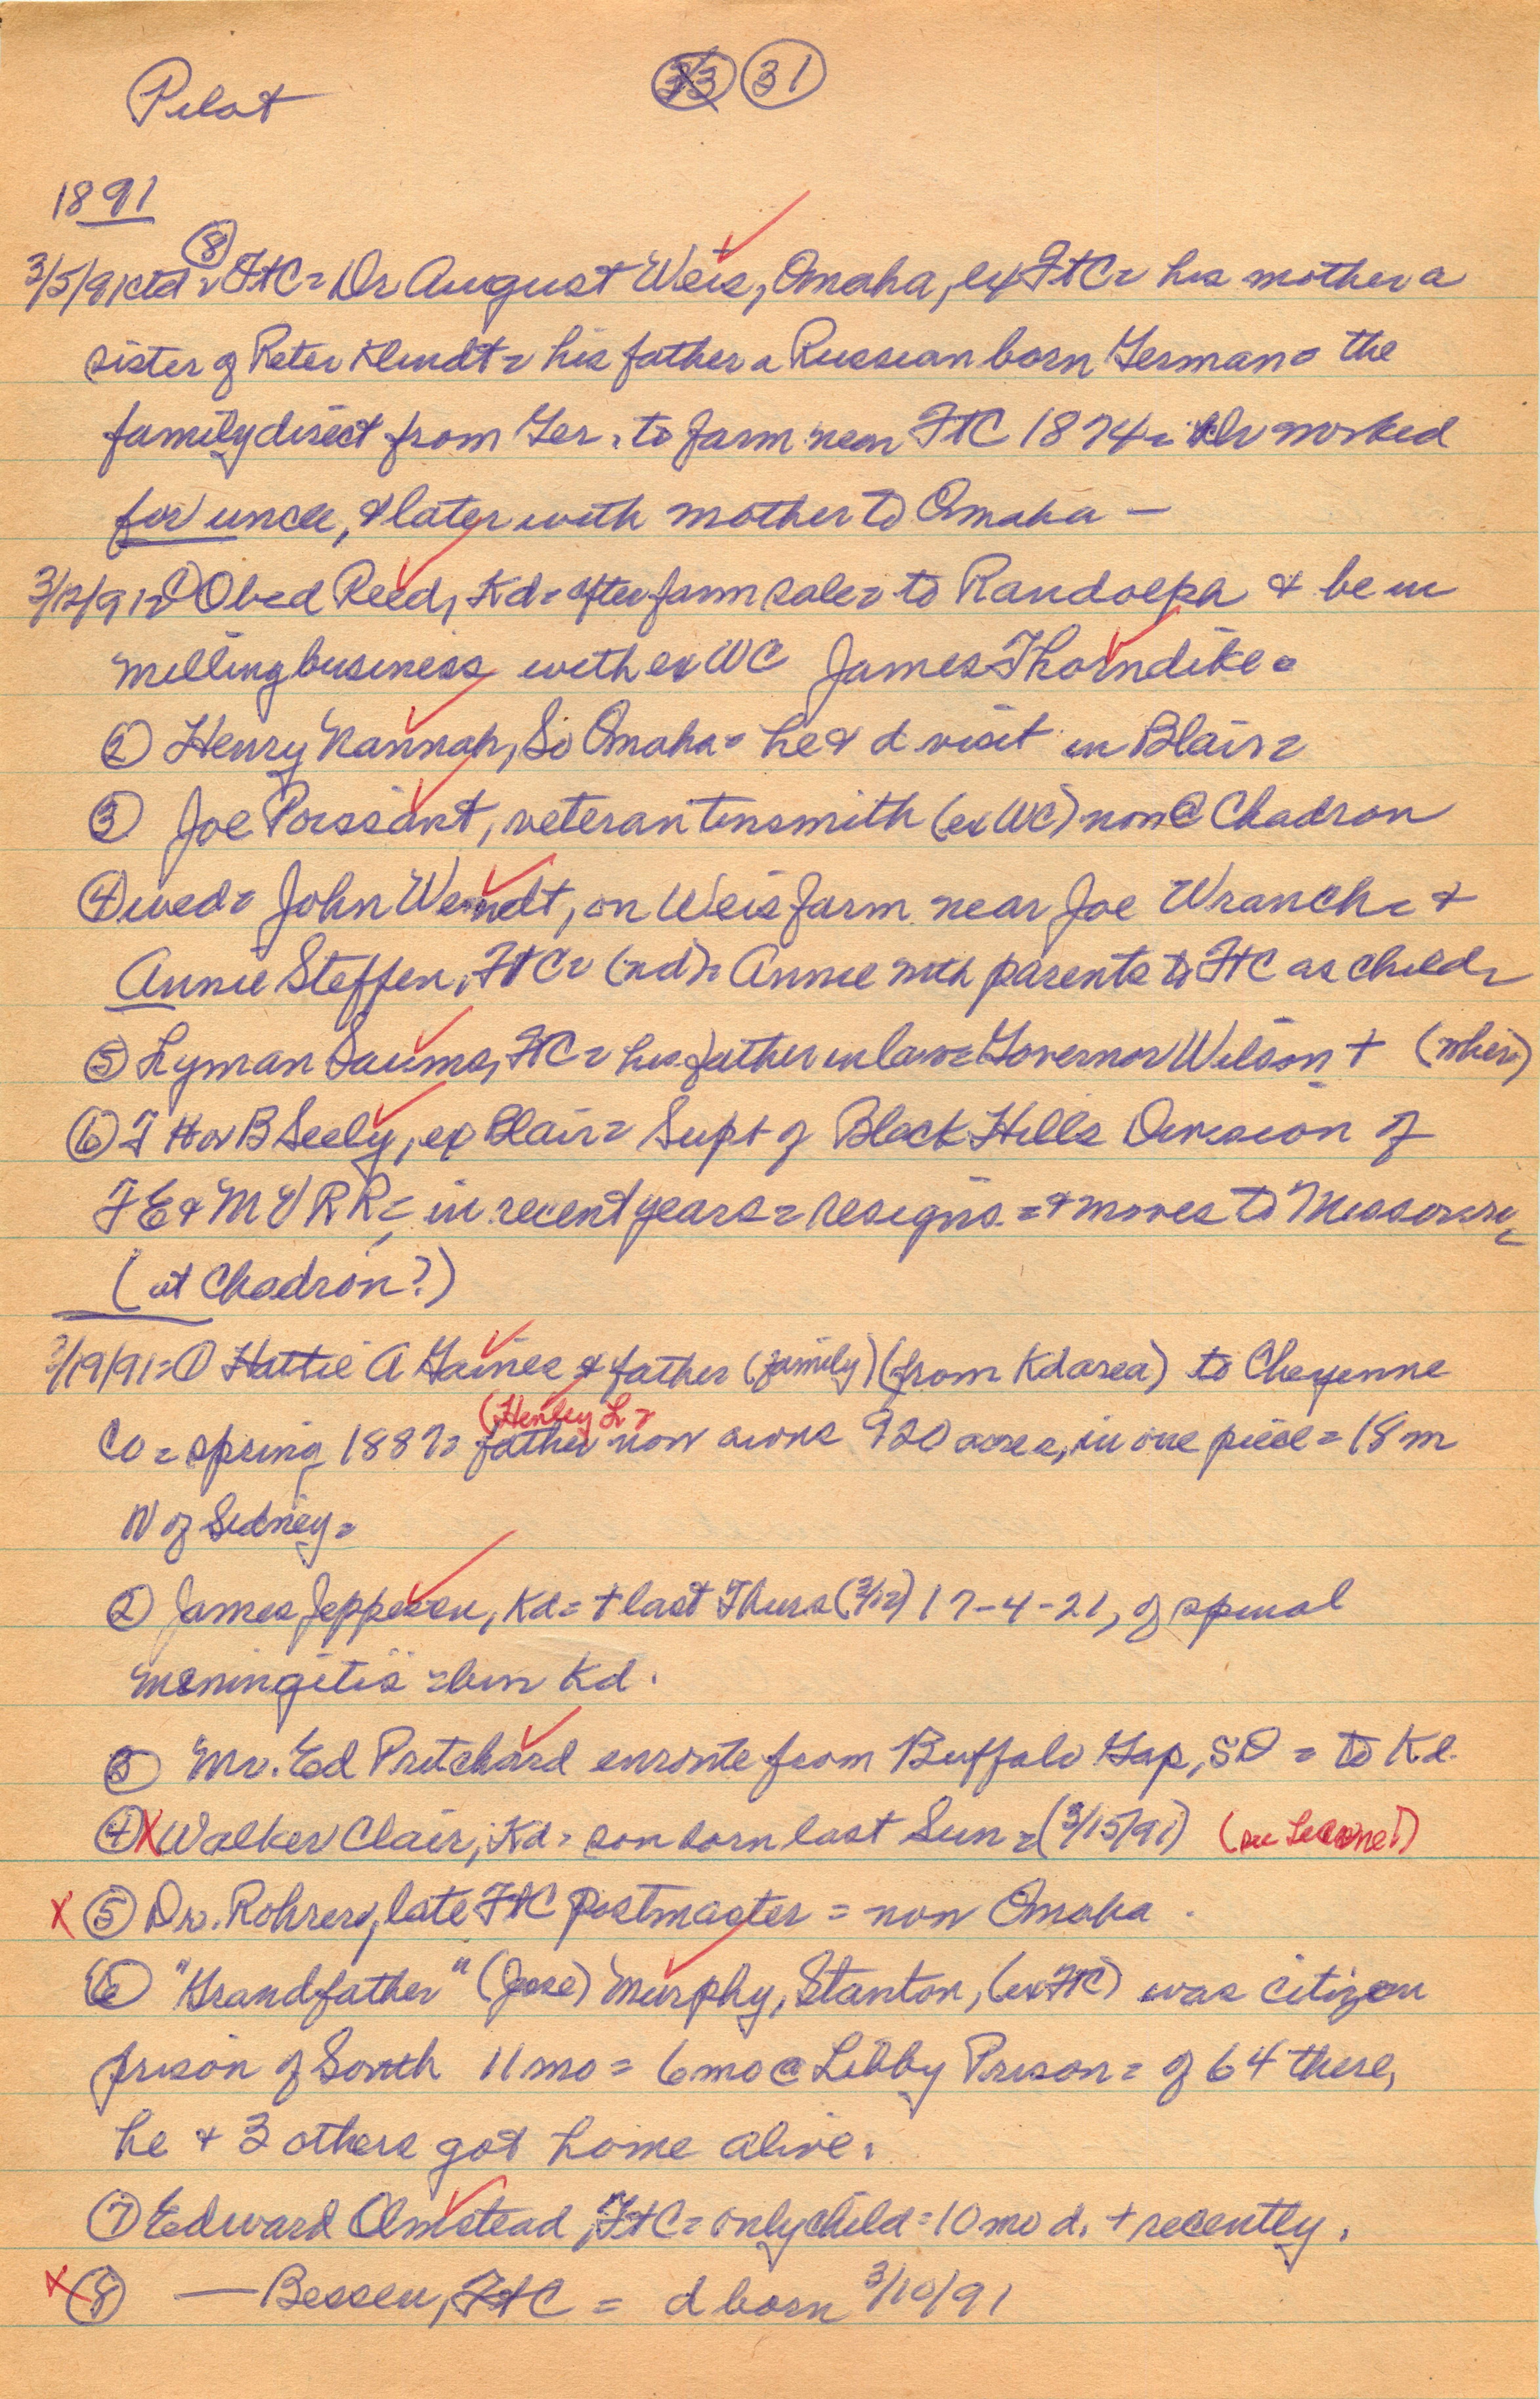 Pilot
33 31
1891
3/5/91ctd = (8) FtC = Dr August Weis, Omaha, ex FtC = his mother a
sister of Peter Klindt = his father a Russian born German = the
family direct from Ger. to farm near FtC 1874 = worked
for uncle, & later with mother to Omaha —
3/12/91= (1) Obed Reed, Kd = after farm sale = to Randolph & be in
milling business with ex WC James Thorndike =
(2) Henry Nannah, So Omaha = he & d visit in Blair =
(3) Joe Poissant, veteran tinsmith (ex WC) now @ Chadron
(4) wed = John Wendt, on Weis farm near Joe Wranch = &
Annie Steffen, FtC = (nd) = Annie with parents to FtC as child =
(5) Lyman Saums, FtC = his father in law = Governor Wilson + (when)
(6) T Hor B Seely, ex Blair = Supt of Black Hills Division of
F E & M V R R = in recent years = resigns = & moves to Missouri =
(at Chadron?)
3/19/91= (1) Hattie A Gaines & father (family) (from Kd area) to Cheyenne
(Henley L =
Co = spring 1887 = father now owns 920 acres, in one piece = 18 m
N of Sidney =
(2) James Jeppesen, Kd = + last Thurs (3/12) 17-4-21, of spinal
meningitis = bur Kd.
(3) Mr. Ed Pritchard enroute from Buffalo Gap, SD = to Kd.
(4) X Walker Clair, Kd = son born last Sun = (3/15/91) (see )
X (5) Dr. Rohrer, late FtC postmaster = now Omaha.
(6) "Grandfather" (Jesse) Murphy, Stanton, (ex FtC) was citizen
prison of South 11 mo = 6 mo @ Libby Prison = of 64 there,
he & 3 others got home alive.
(7) Edward Olmstead, FtC = only child = 10 mo d. + recently.
X (8) — Bessen, FtC = d born 3/10/91